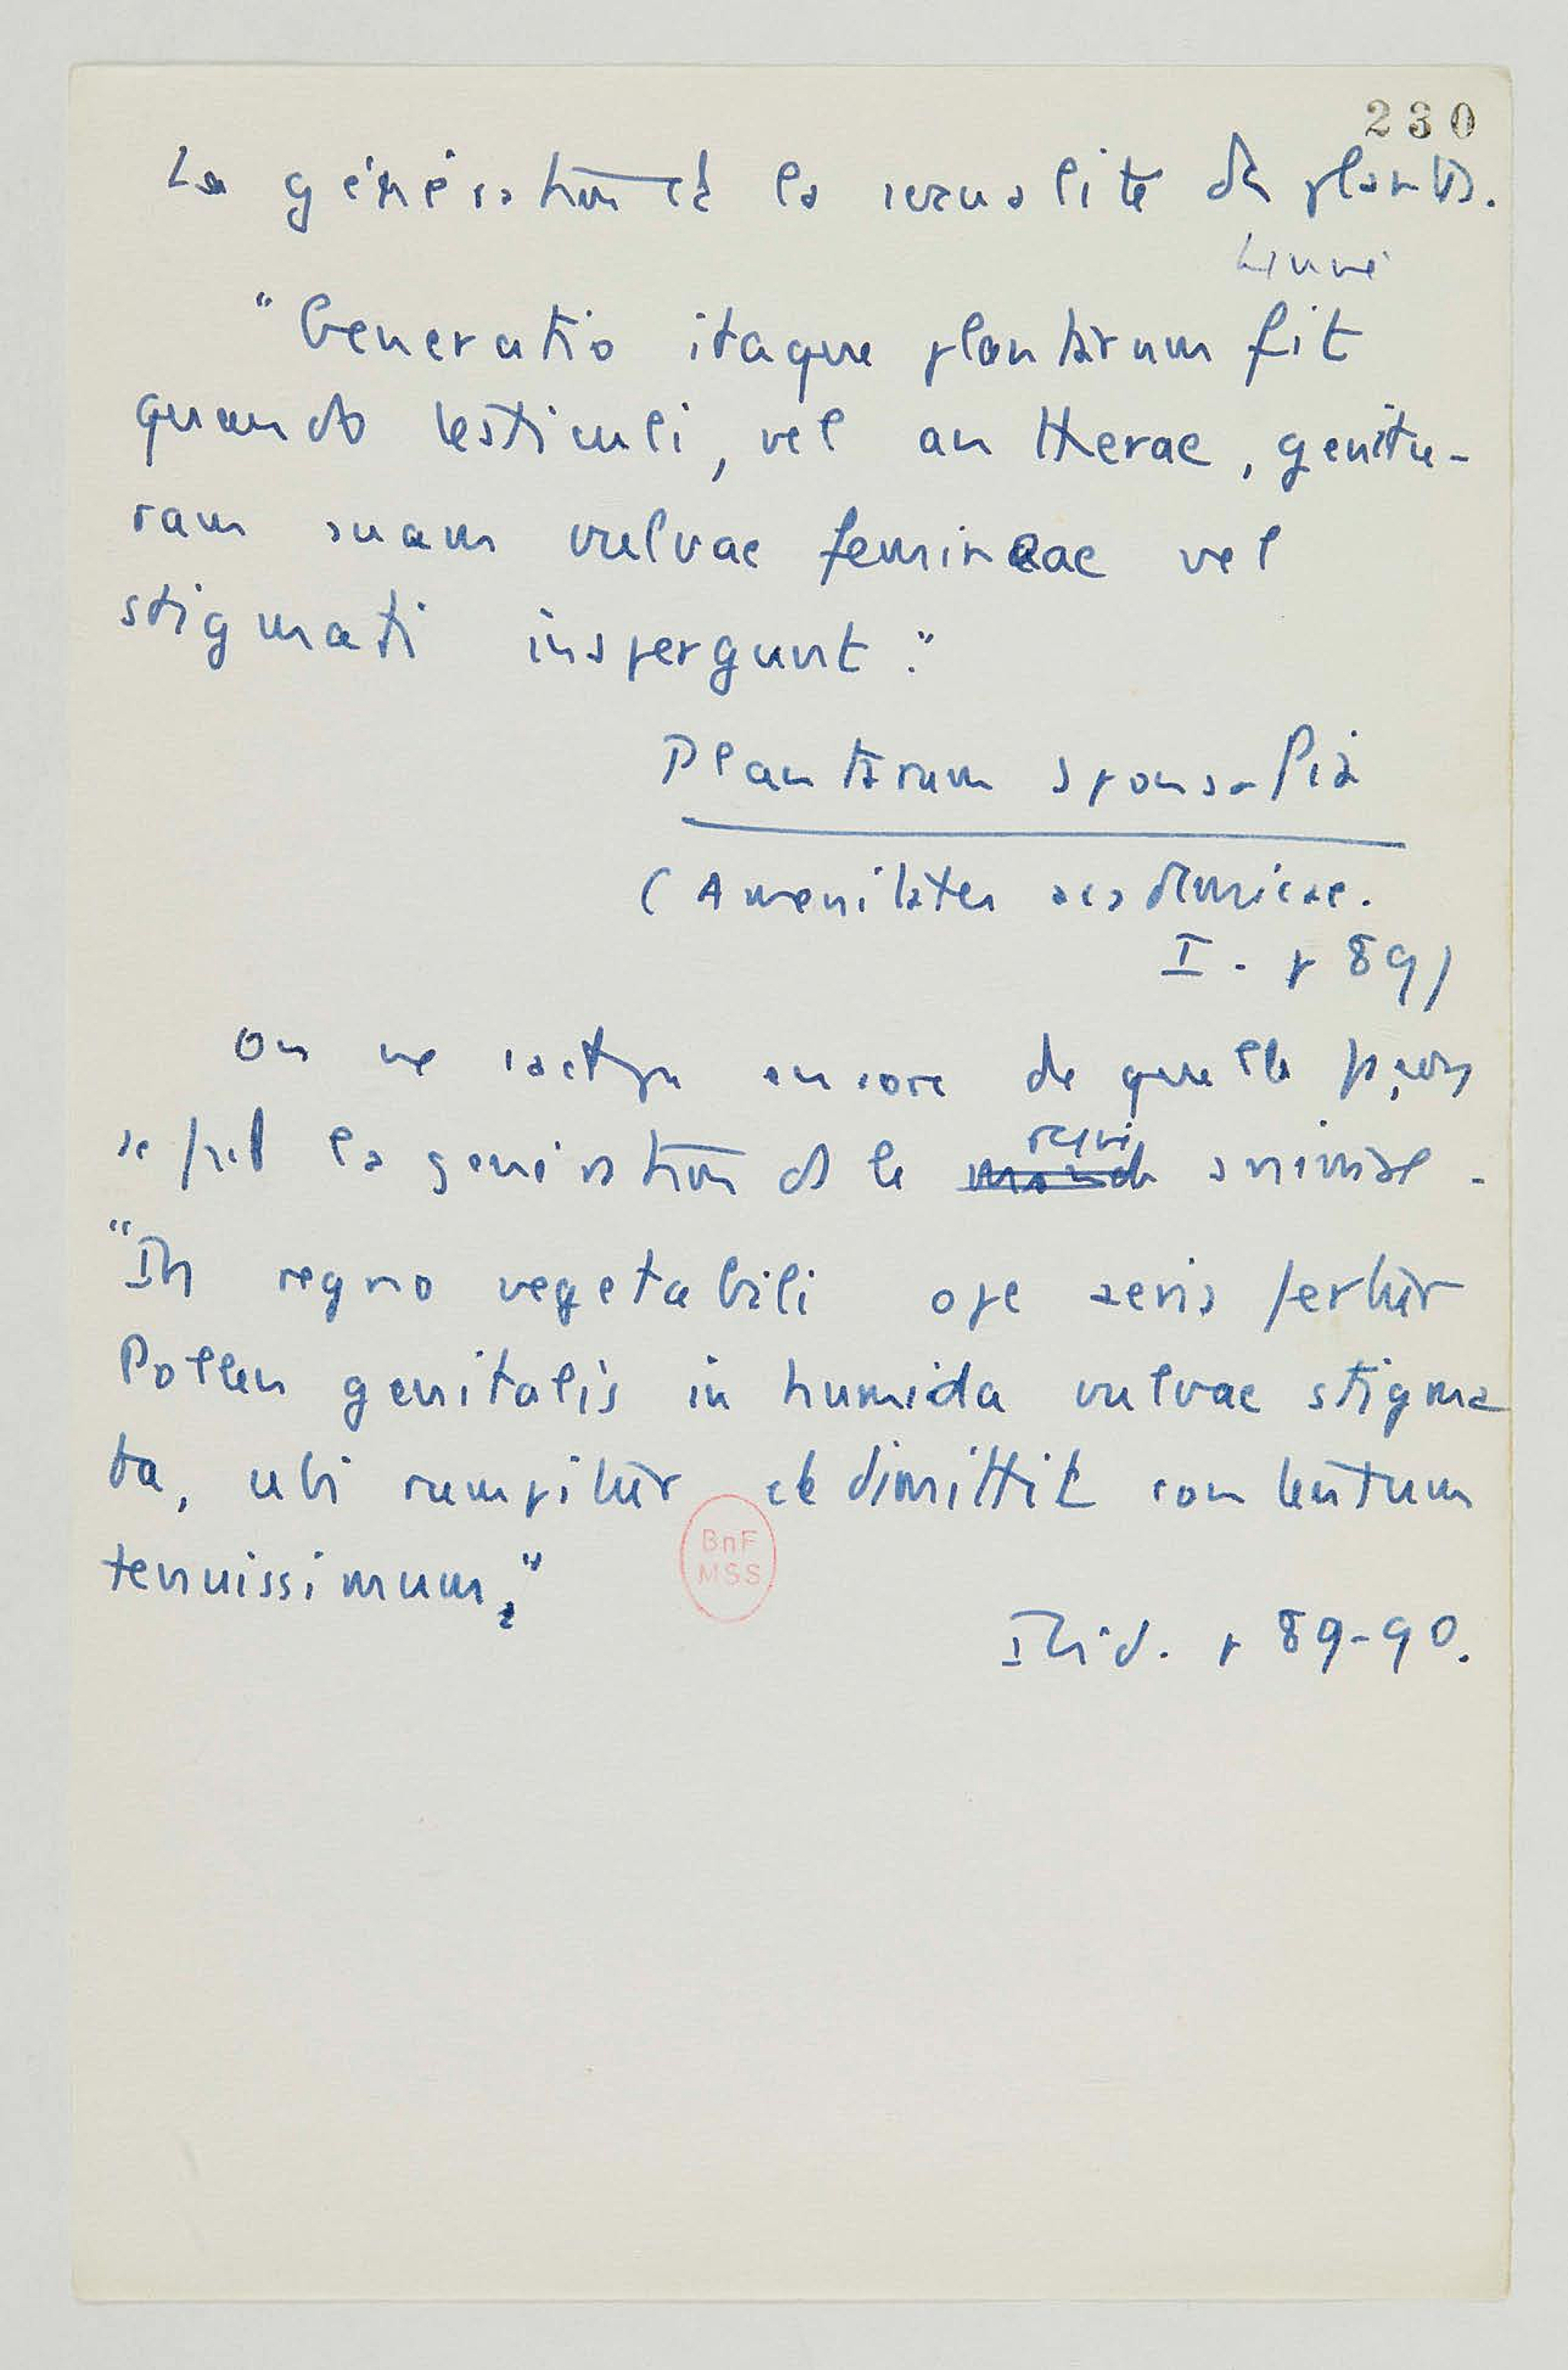 230
La génération et la sexualité des plantes.
Linné
"Generatio itaque plantarum fit
quando testiculi, vel antherae, genitu-
ram suam vulvae femineae vel
stigmati inspergunt."
Plantarum sponsalia
(Amenitates academicae.
I. p 89)
On ne sait pas encore de quelle façon
se fait la génération ds le règne animal.
"In regno vegetabili ope aeris fertur
Pollen genitalis in humida vulvae stigma
ta, ubi rumpitur et dimittit contentum
tenuissimum."
BnF
MSS
Ibid. p 89-90.